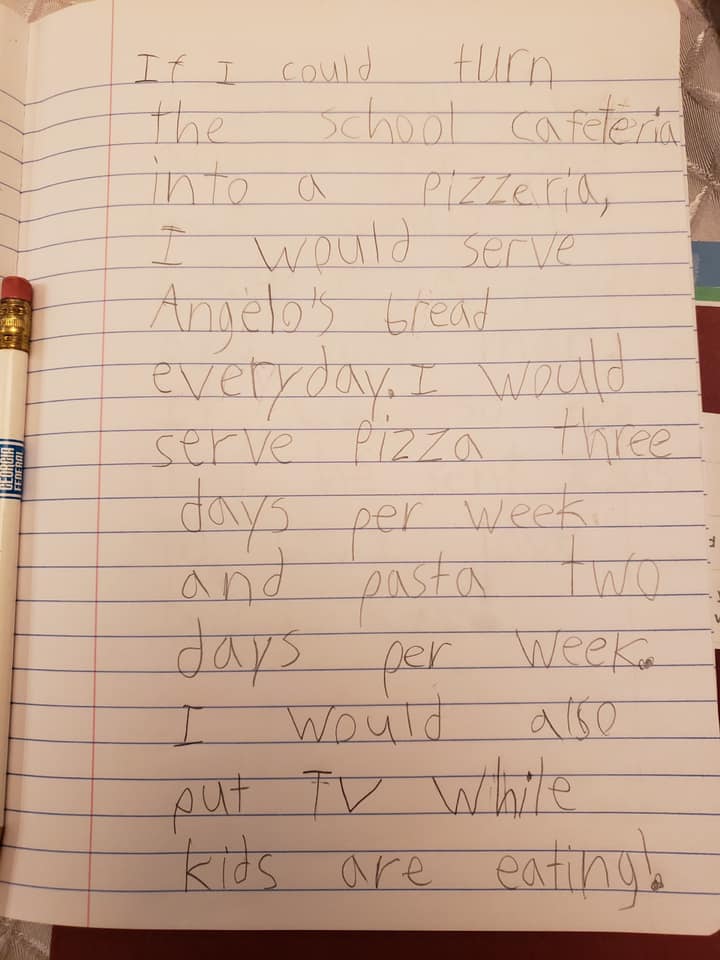 If I could turn
the school cafeteria
into a pizzeria,
I would serve
Angelo's bread
everyday. I would
serve pizza three
days per week
and pasta two
days per week.
I would also
put TV while
kids are eating!
GEORGIA
FEDERAL